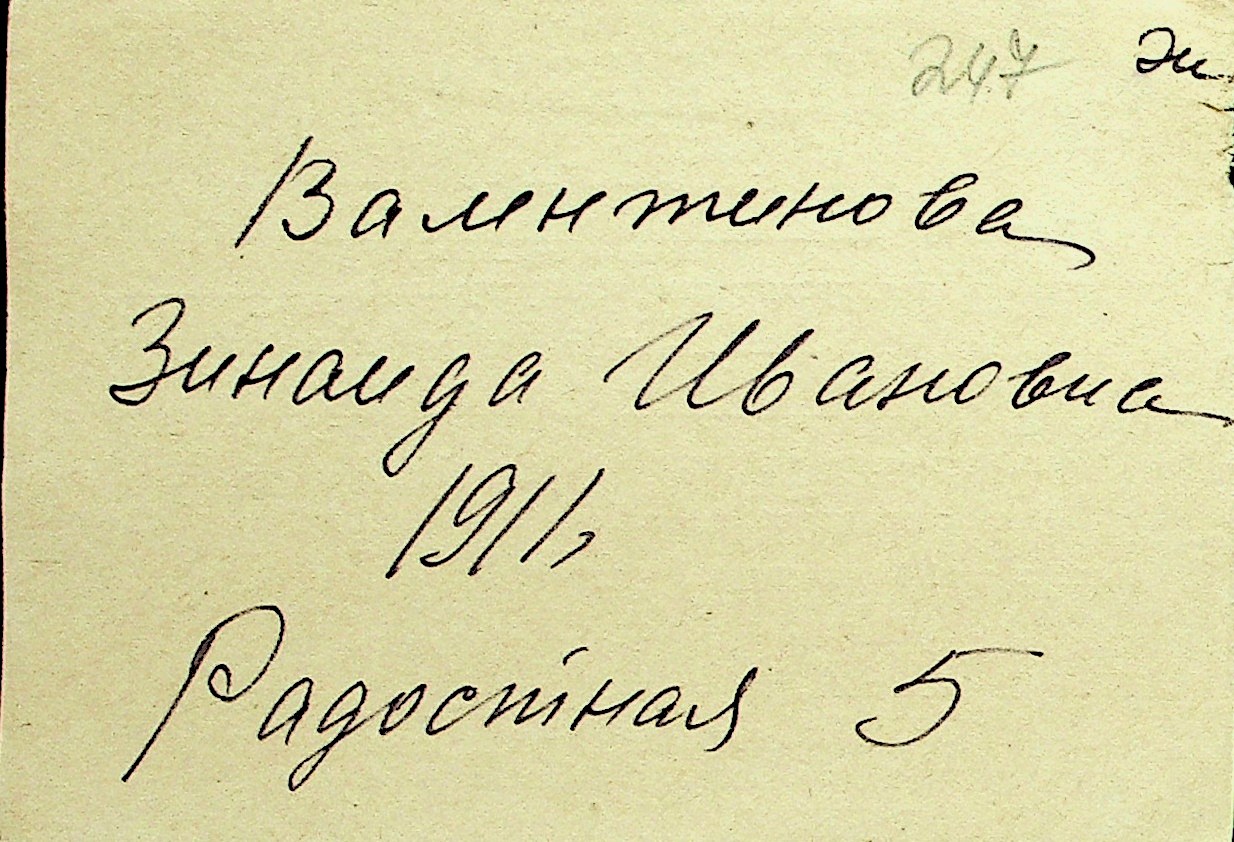 247
Валентинова
Зинаида Ивановна
1911г
Радостная 5